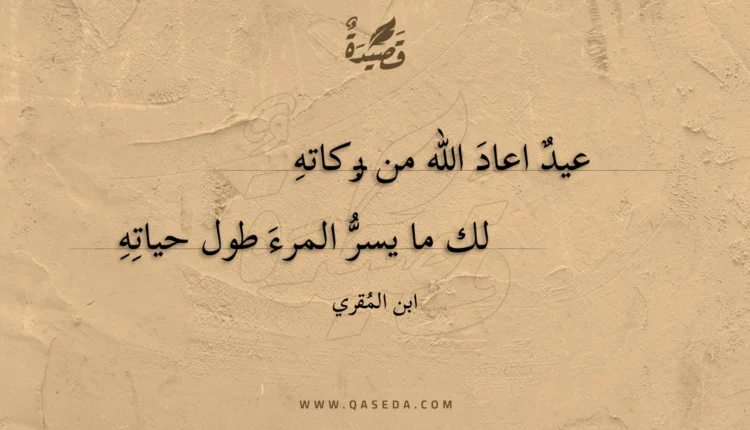 قَصِيدَةٌ
عيدٌ اعادَ الله من بركاتهِ
لك ما يسرُّ المرءَ طول حياتِهِ
ابن المُقري
WWW.QASEDA.COM